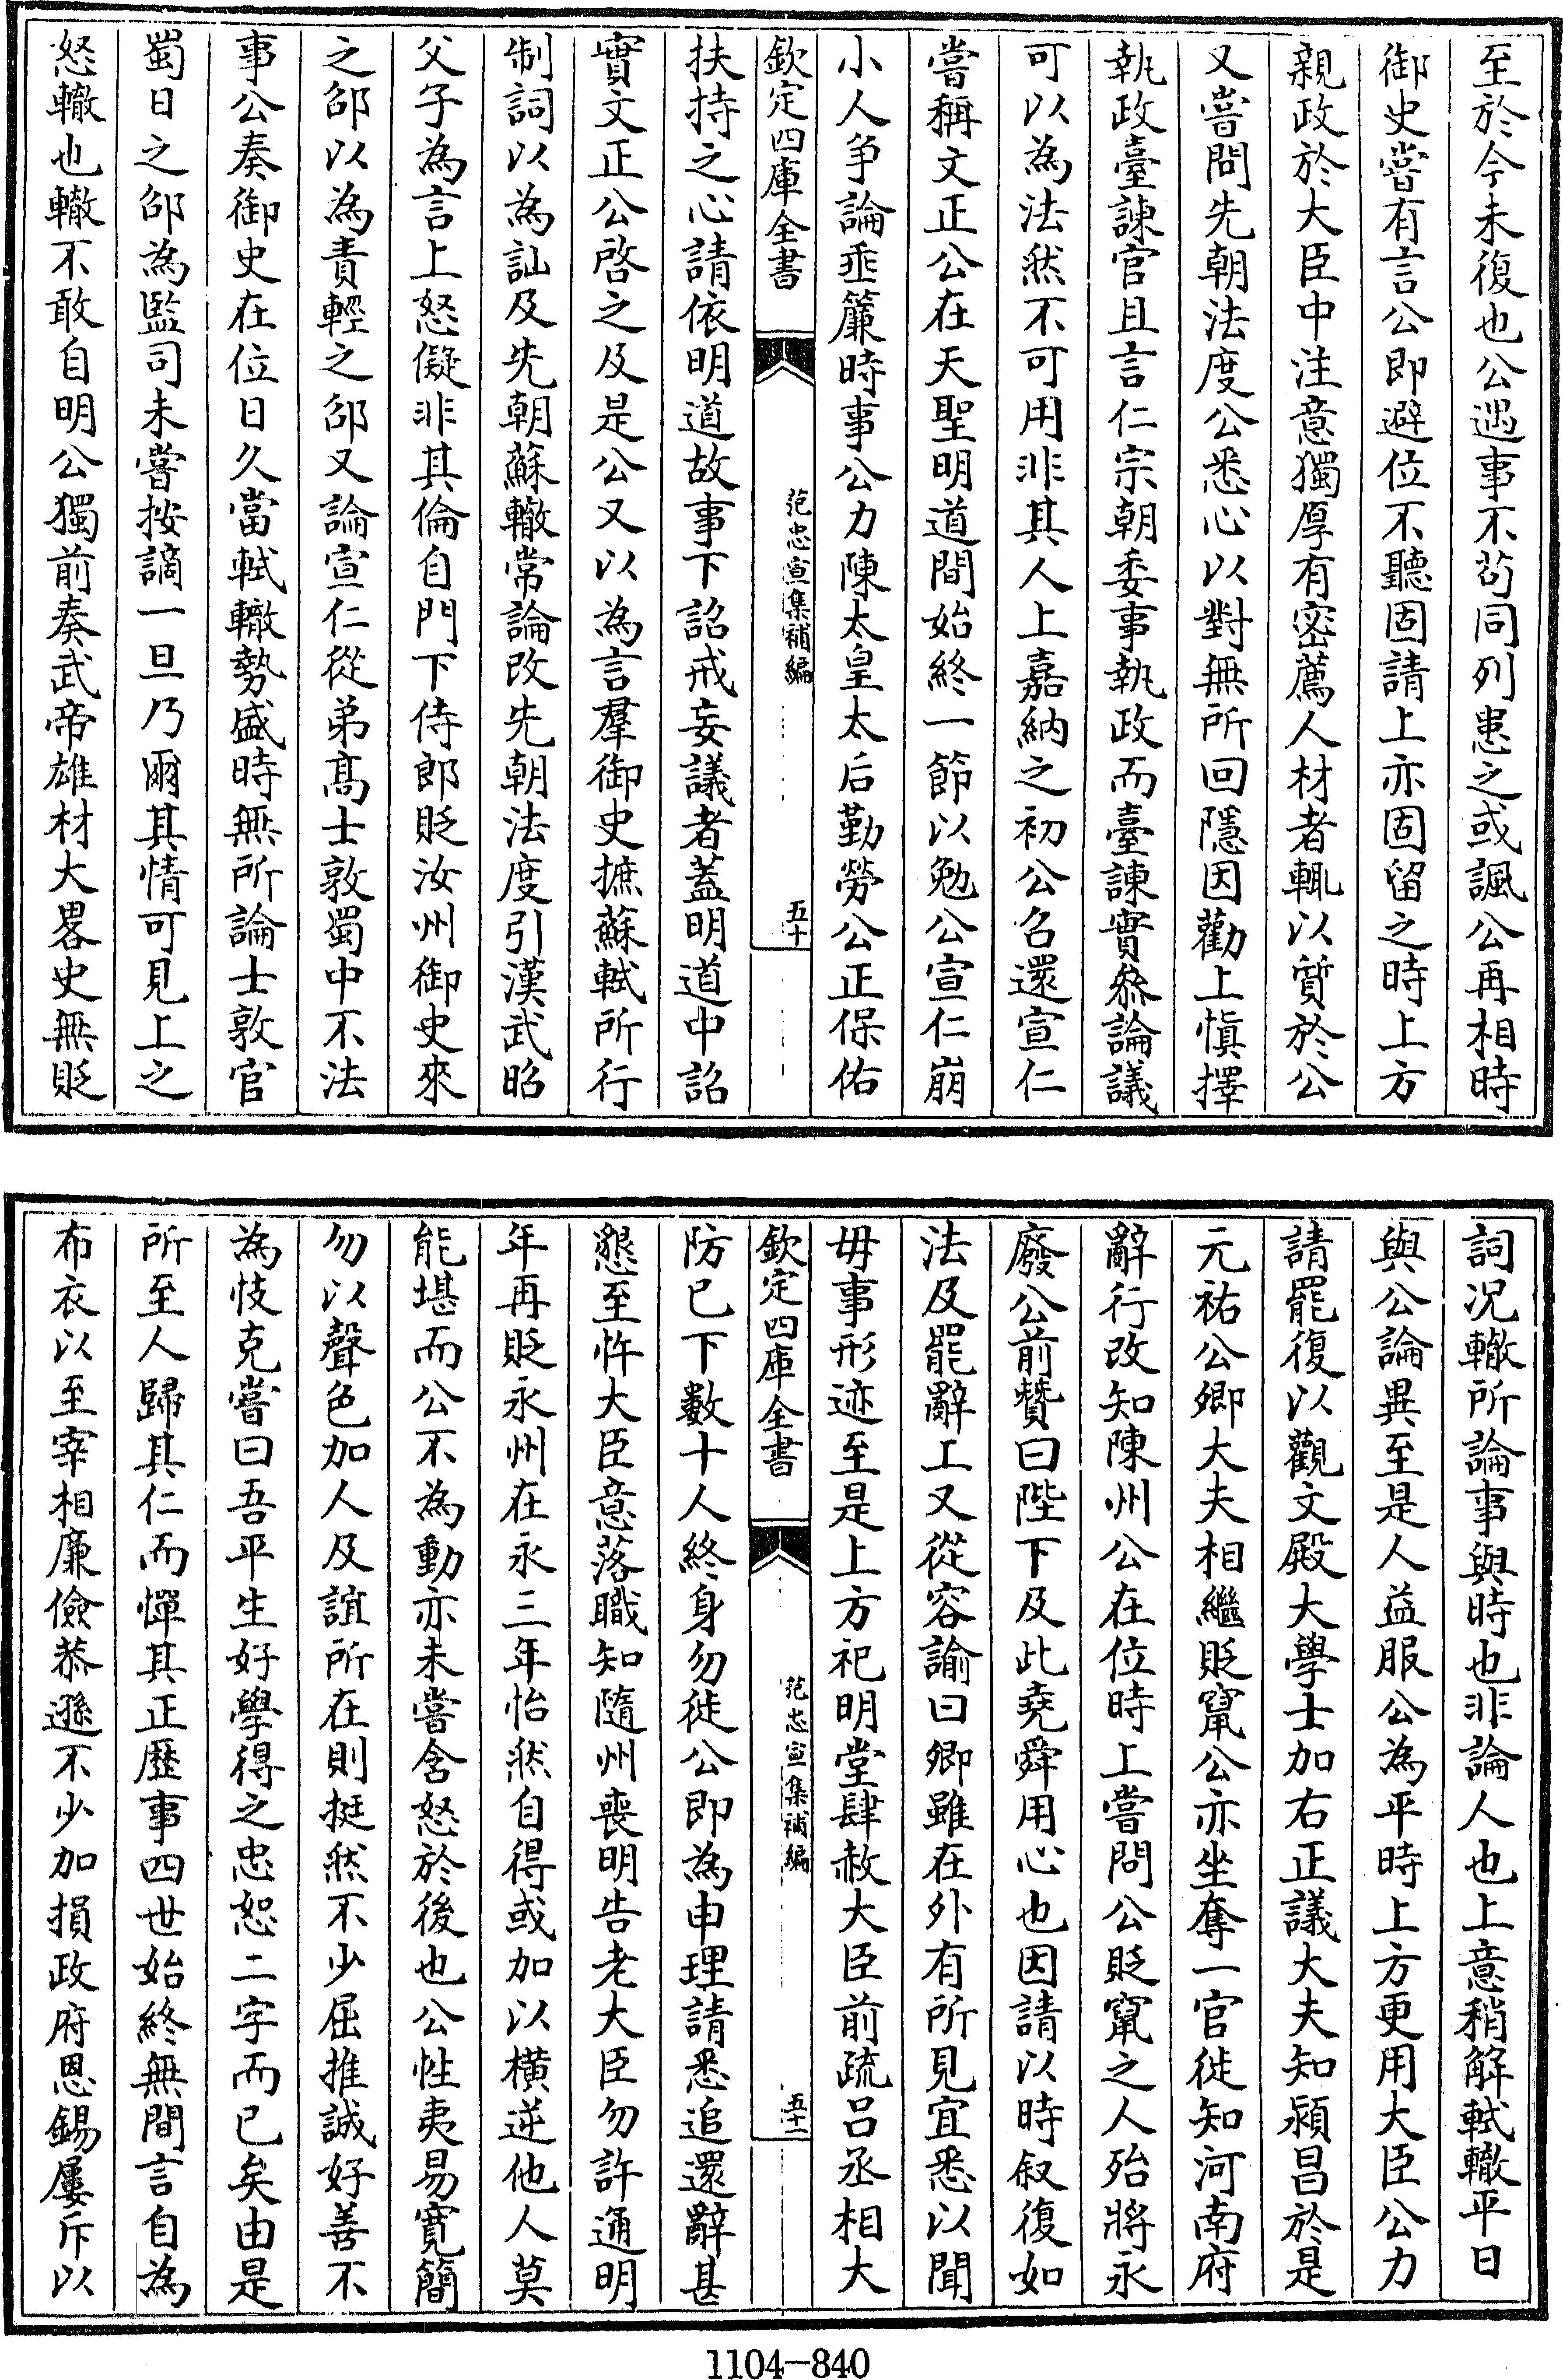 至於今未復也公遇事不苟同列患之或諷公再相時
御史嘗有言公即避位不聽固請上亦固留之時上方
親政於大臣中注意獨厚有密薦人材者輒以質於公
又嘗問先朝法度公悉心以對無所回隱因勸上慎擇
執政臺諫官且言仁宗朝委事執政而臺諫實叅論議
可以為法然不可用非其人上嘉納之初公召還宣仁
嘗稱文正公在天聖明道間始終一節以勉公宣仁崩
小人争論垂簾時事公力陳太皇太后勤勞公正保佑
欽定四庫全書
范忠宣集補編
五十
扶持之心請依明道故事下詔戒妄議者蓋明道中詔
實文正公啓之及是公又以為言羣御史摭蘇軾所行
制詞以為訕及先朝蘇轍常論改先朝法度引漢武昭
父子為言上怒儗非其倫自門下侍郎貶汝州御史來
之邵以為責輕之邵又論宣仁從弟髙士敦蜀中不法
事公奏御史在位日久當軾轍勢盛時無所論士敦官
蜀日之邵為監司未嘗按謫一旦乃爾其情可見上之
怒轍也轍不敢自明公獨前奏武帝雄材大畧史無貶
詞况轍所論事與時也非論人也上意稍解軾轍平日
與公論異至是人益服公為平時上方更用大臣公力
請罷復以觀文殿大學士加右正議大夫知潁昌於是
元祐公卿大夫相繼貶竄公亦坐奪一官徙知河南府
辭行改知陳州公在位時上嘗問公貶竄之人殆將永
廢公前贊曰陛下及此堯舜用心也因請以時叙復如
法及罷辭上又從容諭曰卿雖在外有所見宜悉以聞
毋事形迹至是上方祀明堂肆赦大臣前疏吕丞相大
欽定四庫全書
范忠宣集補編
五十一
防已下數十人終身勿徙公即為申理請悉追還辭甚
懇至忤大臣意落職知隨州喪明告老大臣勿許通明
年再貶永州在永三年怡然自得或加以横逆他人莫
能堪而公不為動亦未嘗含怒於後也公性夷易寬簡
勿以聲色加人及誼所在則挺然不少屈推誠好善不
為忮克嘗曰吾平生好學得之忠恕二字而已矣由是
所至人歸其仁而憚其正歴事四世始終無間言自為
布衣以至宰相廉儉恭遜不少加損政府恩錫屢斥以
1104-840